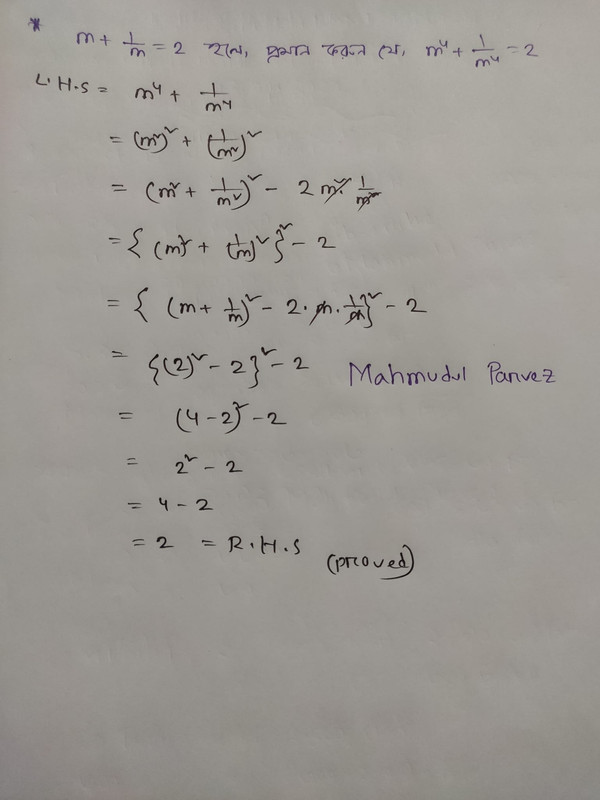 * m + 1/m = 2 হলে, প্রমান করুন যে, m⁴ + 1/m⁴ = 2
L.H.S = m⁴ + 1/m⁴
= (m²)² + (1/m²)²
= (m² + 1/m²)² - 2 m². 1/m²
= { (m)² + (1/m)² }² - 2
= { (m + 1/m)² - 2. m. 1/m }² - 2
= {(2)² - 2}² - 2
Mahmudul Parvez
= (4-2)² - 2
= 2² - 2
= 4 - 2
= 2 = R.H.S (proved)